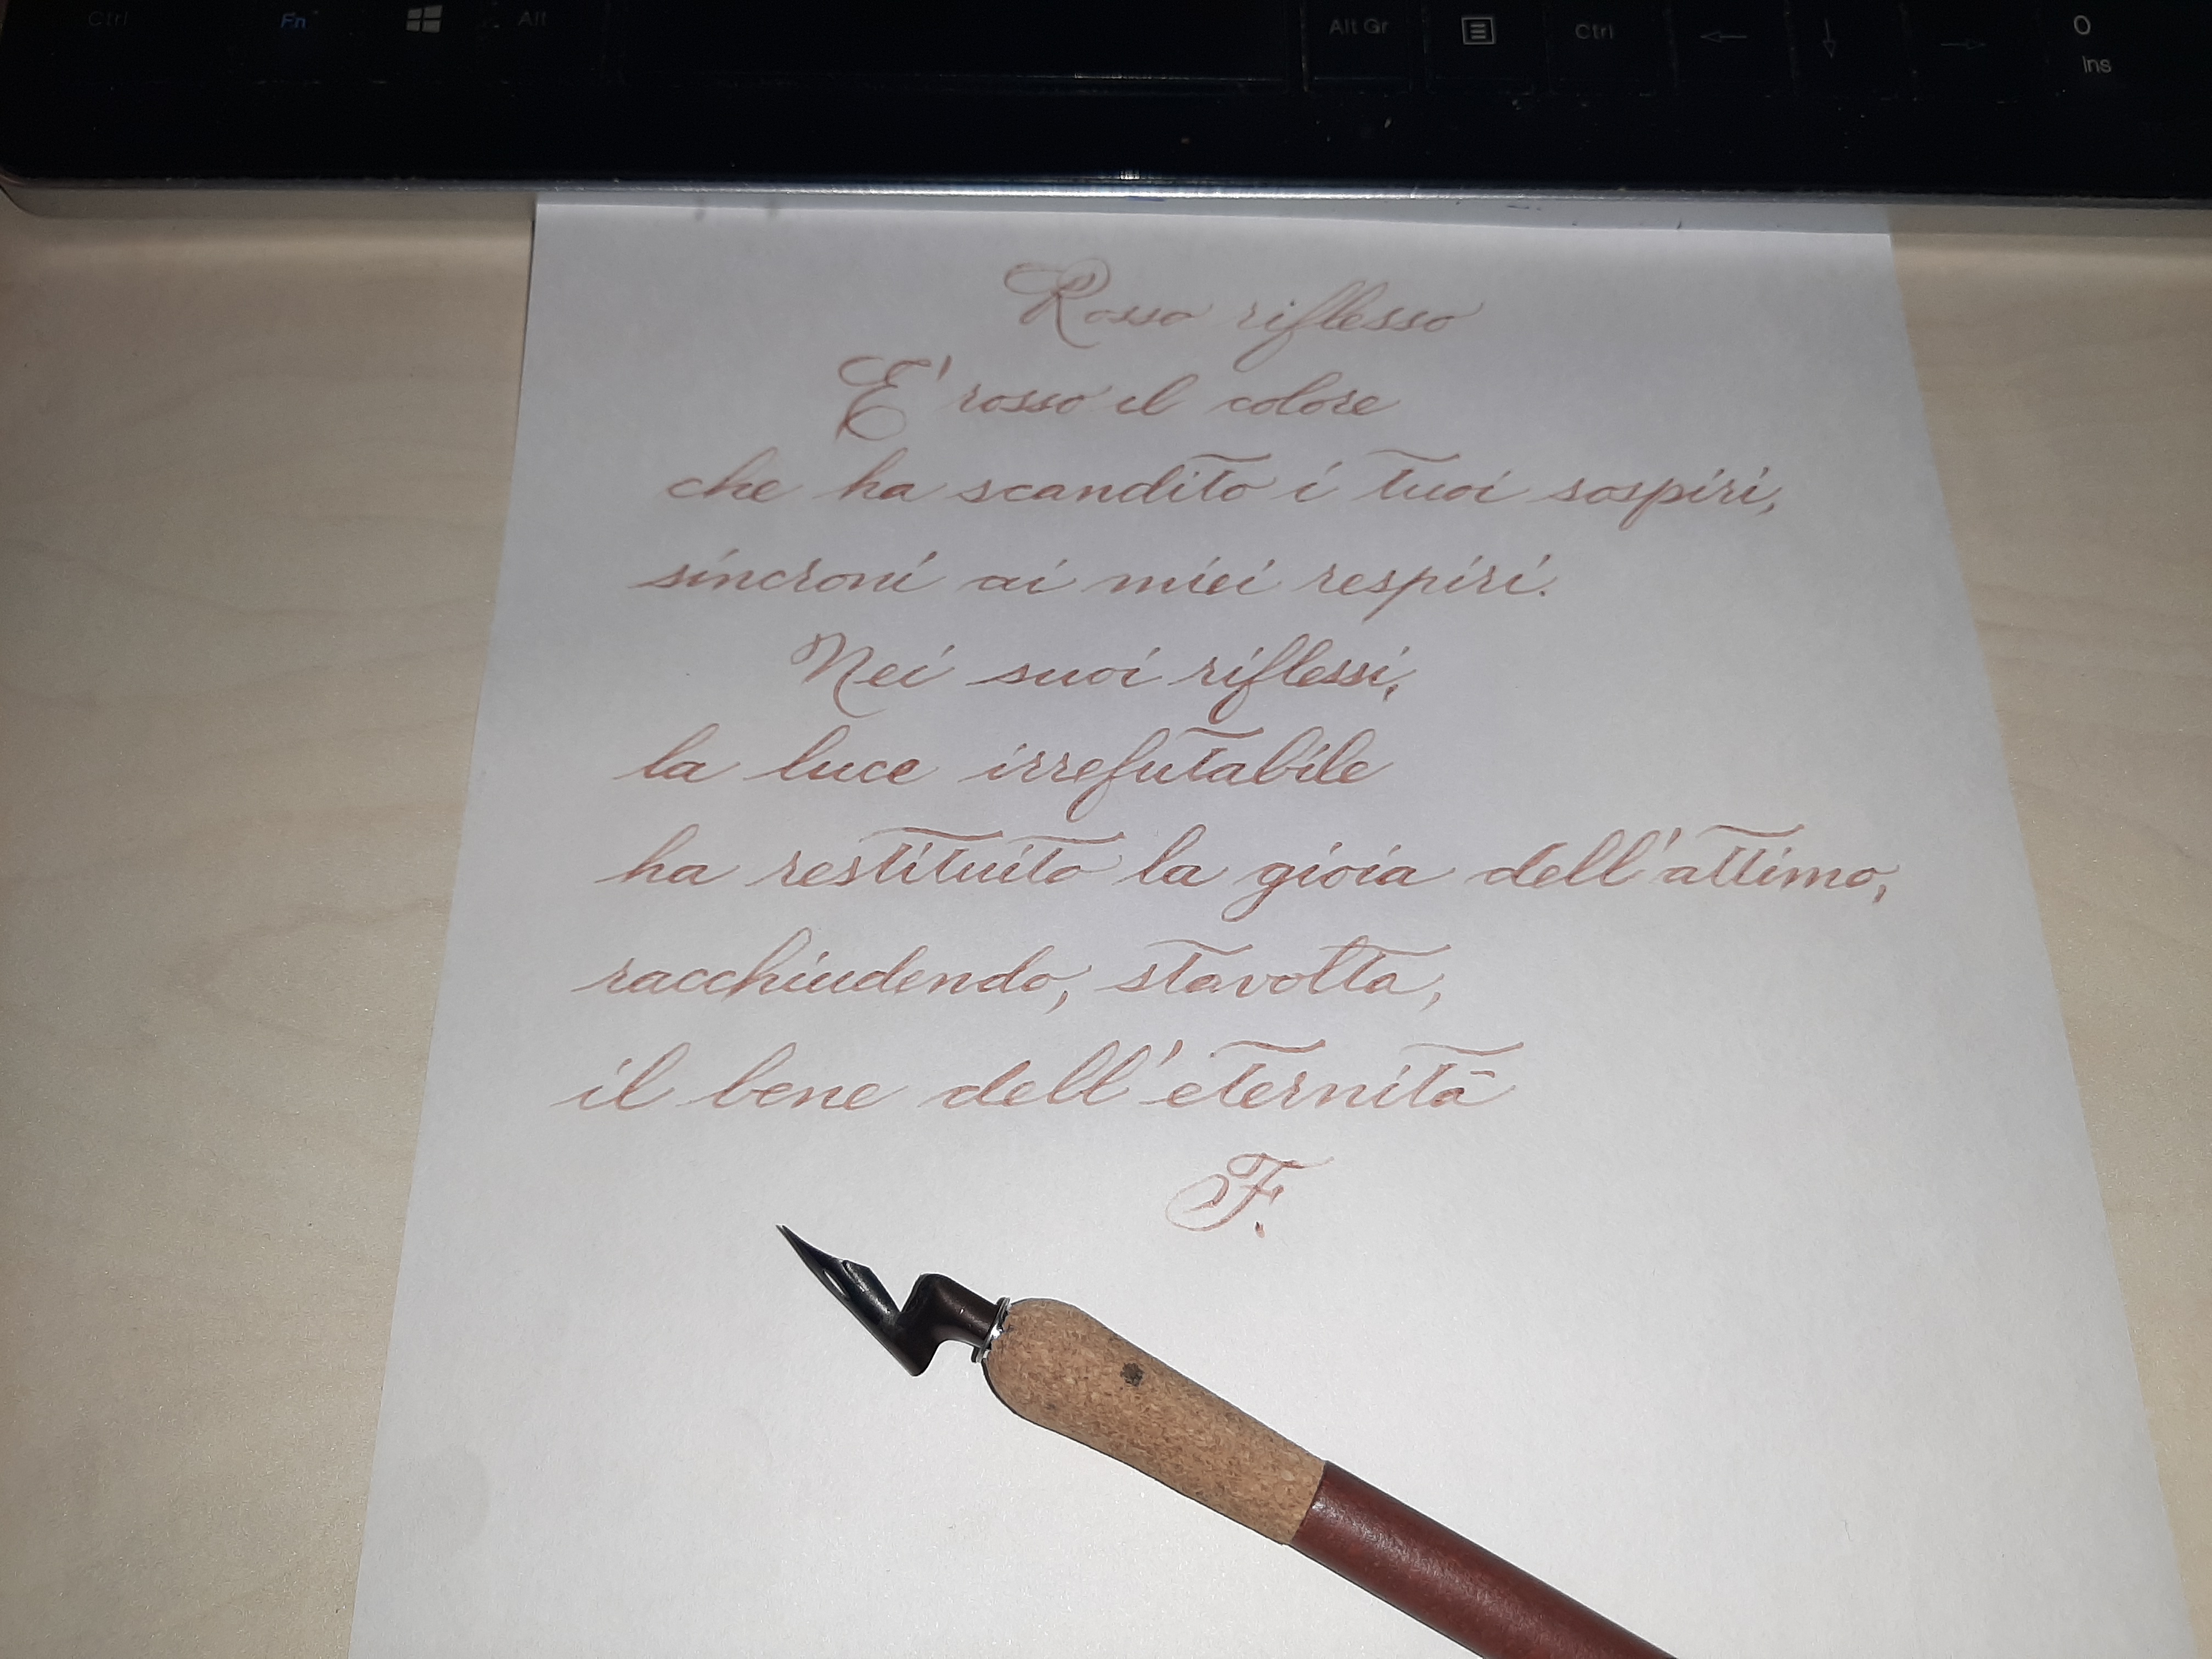 Ctrl Fn Alt Alt Gr Ctrl 0
Ins
Rosso riflesso
E' rosso il colore
che ha scandito i tuoi sospiri,
sincroni ai miei respiri.
Nei suoi riflessi,
la luce irrefutabile
ha restituito la gioia dell'attimo,
racchiudendo, stavolta,
il bene dell'eternità
F.